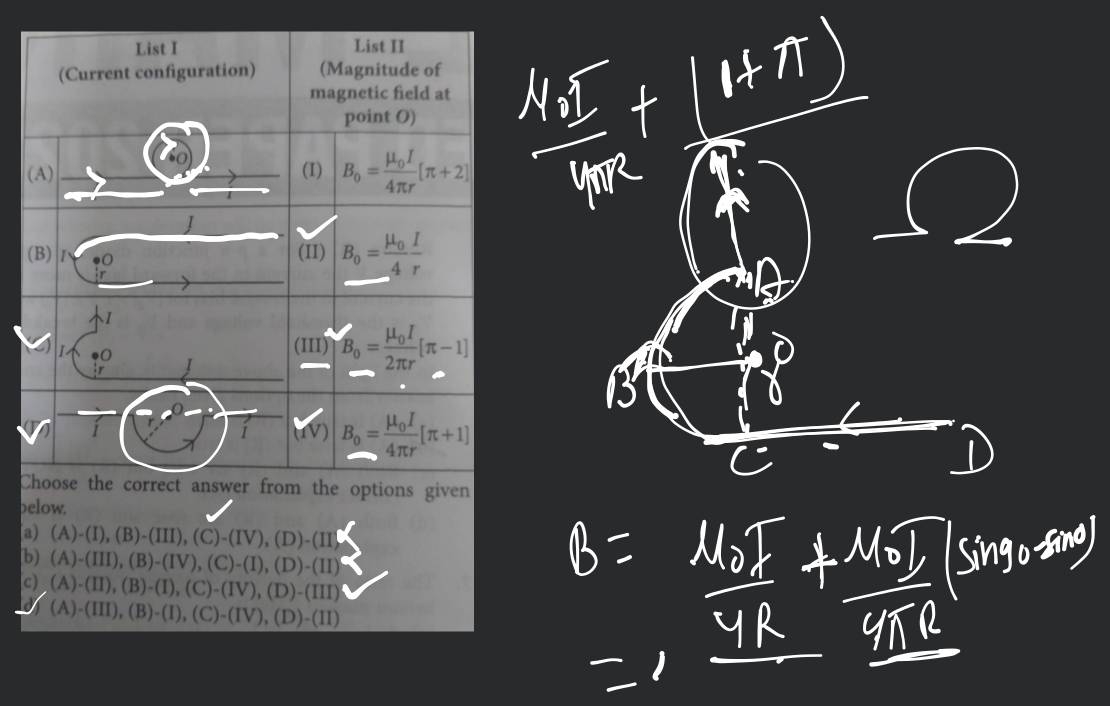 List I
(Current configuration)
List II
(Magnitude of
magnetic field at
point O)
(A)
O
I
(I) B₀ = μ₀I/4πr [π+2]
(B)
I
I
O
r
(II) B₀ = μ₀/4 I/r
I
I
O
r
I
(III) B₀ = μ₀I/2πr [π−1]
O
r
I
I
(IV) B₀ = μ₀I/4πr [π+1]
Choose the correct answer from the options given
below.
a) (A)-(I), (B)-(III), (C)-(IV), (D)-(II)
b) (A)-(III), (B)-(IV), (C)-(I), (D)-(II)
c) (A)-(II), (B)-(I), (C)-(IV), (D)-(III)
d) (A)-(III), (B)-(I), (C)-(IV), (D)-(II)
M₀I/4πR + (1+π)
A
B
O
C
D
B = M₀I/4R + M₀I/4πR (sin90-sin0)
=